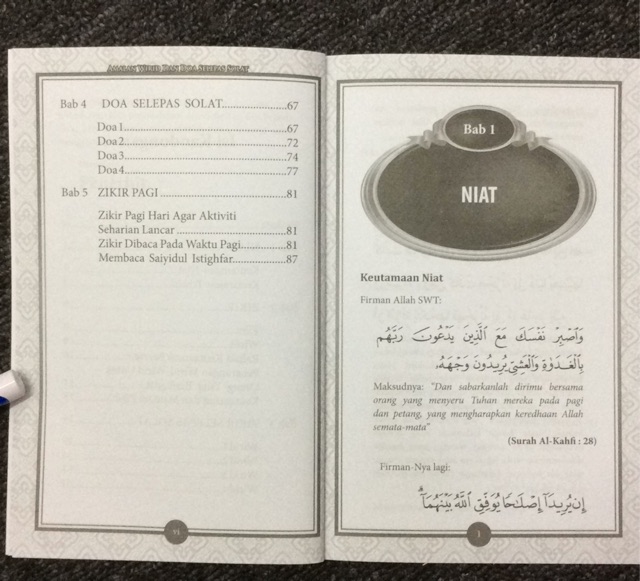 Amalan Wirid Dan Doa Selepas Solat
Bab 4 DOA SELEPAS SOLAT....................67
Doa 1....................67
Doa 2....................72
Doa 3....................74
Doa 4....................77
Bab 5 ZIKIR PAGI....................81
Zikir Pagi Hari Agar Aktiviti
Seharian Lancar....................81
Zikir Dibaca Pada Waktu Pagi....................81
Membaca Saiyidul Istighfar....................87
Bab 1
NIAT
Keutamaan Niat
Firman Allah SWT:
وَٱصْبِرْ نَفْسَكَ مَعَ ٱلَّذِينَ يَدْعُونَ رَبَّهُم
بِٱلْغَدَوٰةِ وَٱلْعَشِيِّ يُرِيدُونَ وَجْهَهُۥ
Maksudnya: "Dan sabarkanlah dirimu bersama
orang yang menyeru Tuhan mereka pada pagi
dan petang, yang mengharapkan keredhaan Allah
semata-mata"
(Surah Al-Kahfi : 28)
Firman-Nya lagi:
إِن يُرِيدَآ إِصْلَـٰحًا يُوَفِّقِ ٱللَّهُ بَيْنَهُمَآ
1